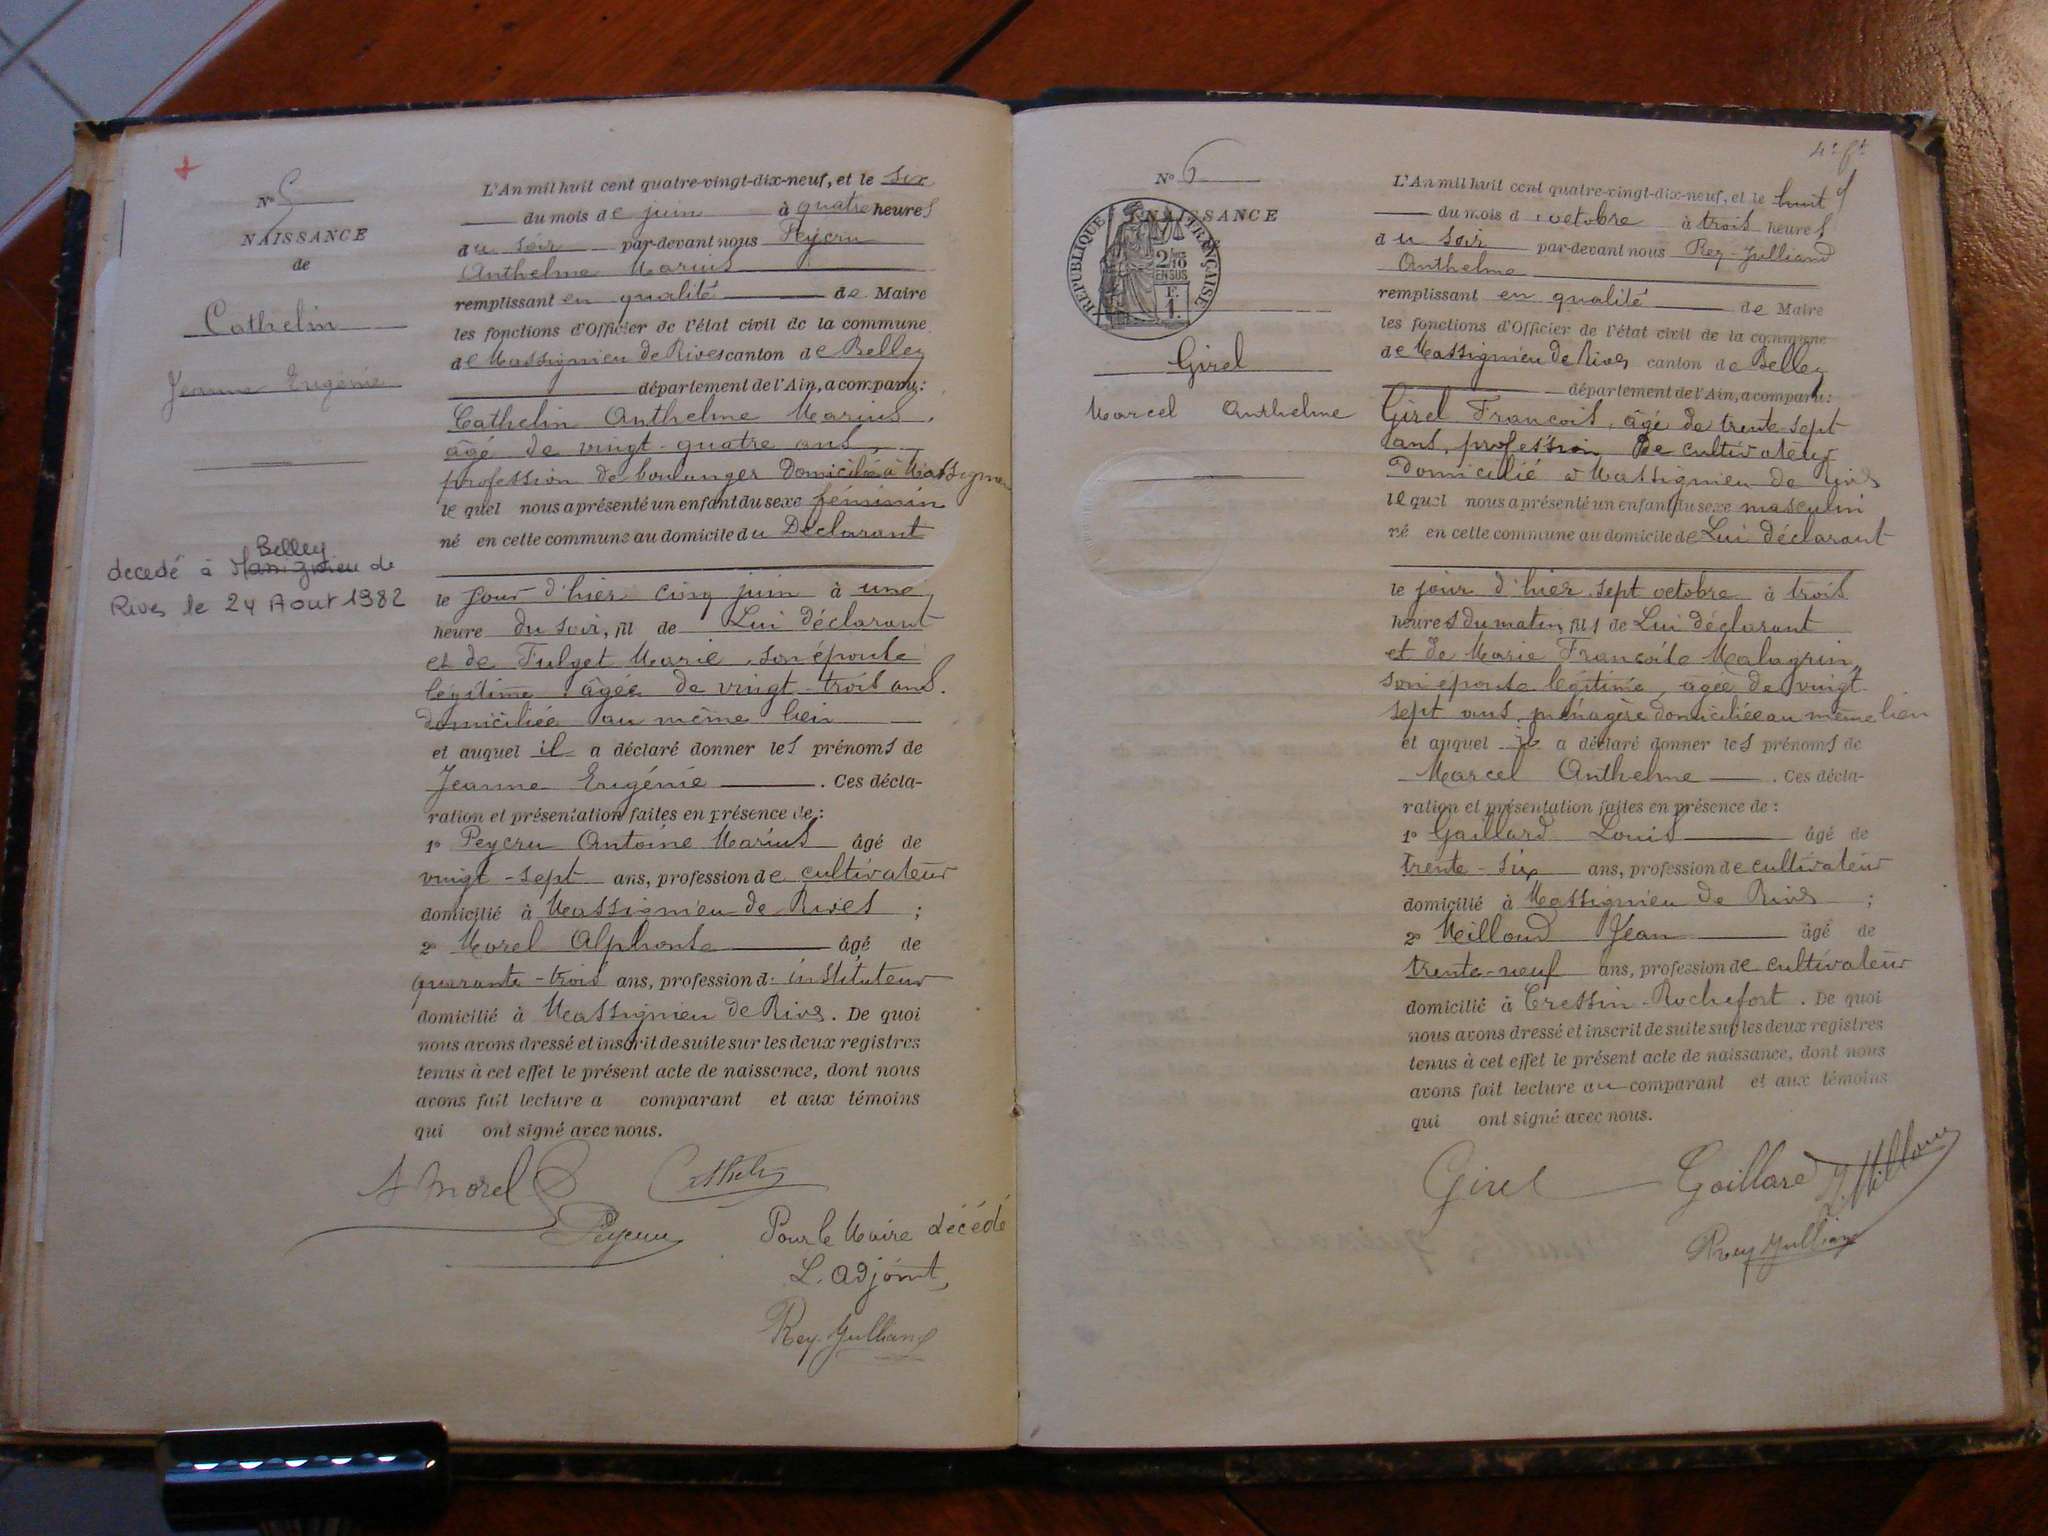 N° 5
NAISSANCE
de
Cathelin
Jeanne Eugénie
decedé à Manignieu de
Belley
Rives le 24 Aout 1982
L'An mil huit cent quatre-vingt-dix-neuf, et le six
du mois de juin à quatre heures
du soir par-devant nous Peycru
Anthelme Marius
remplissant en qualité de Maire
les fonctions d'Officier de l'état civil de la commune
de Massignieu de Rives canton de Belley
département de l'Ain, a comparu:
Cathelin Anthelme Marius,
âgé de vingt-quatre ans
profession de boulanger domicilié à Massignieu
lequel nous a présenté un enfant du sexe féminin
né en cette commune au domicile du Déclarant
le jour d'hier cinq juin à une
heure du soir, fil de Lui déclarant
et de Fulget Marie, son épouse
légitime âgée de vingt-trois ans.
domiciliée au même lieu
et auquel il a déclaré donner les prénoms de
Jeanne Eugénie. Ces décla-
ration et présentation faites en présence de:
1° Peycru Antoine Marius âgé de
vingt-sept ans, profession de cultivateur
domicilié à Massignieu de Rives;
2° Morel Alphonse âgé de
quarante-trois ans, profession d' instituteur
domicilié à Massignieu de Rives. De quoi
nous avons dressé et inscrit de suite sur les deux registres
tenus à cet effet le présent acte de naissance, dont nous
avons fait lecture a comparant et aux témoins
qui ont signé avec nous.
A Morel Cathelin
Peycru
Pour le Maire décédé
L'adjoint,
Rey-Julliand
4e ft
N° 6
NAISSANCE
RÉPUBLIQUE FRANÇAISE
2/10
EN SUS
F.
1.
Girel
Marcel Anthelme
L'An mil huit cent quatre-vingt-dix-neuf, et le huit
du mois d'octobre à trois heures
du soir par-devant nous Rey-Julliand
Anthelme
remplissant en qualité de Maire
les fonctions d'Officier de l'état civil de la commune
de Massignieu de Rives canton de Belley
département de l'Ain, a comparu:
Girel François, âgé de trente-sept
ans, profession de cultivateur
Domicilié à Massignieu de Rives
lequel nous a présenté un enfant du sexe masculin
né en cette commune au domicile de Lui déclarant
le jour d'hier sept octobre à trois
heures du matin, fils de Lui déclarant
et de Marie Françoise Malagrin,
son épouse légitime, âgée de vingt-
sept ans, ménagère domiciliée au même lieu
et auquel il a déclaré donner les prénoms de
Marcel Anthelme. Ces décla-
ration et présentation faites en présence de:
1° Gaillard Louis âgé de
trente-six ans, profession de cultivateur
domicilié à Massignieu de Rives;
2° Milloud Jean âgé de
trente-neuf ans, profession de cultivateur
domicilié à Cressin-Rochefort. De quoi
nous avons dressé et inscrit de suite sur les deux registres
tenus à cet effet le présent acte de naissance, dont nous
avons fait lecture au comparant et aux témoins
qui ont signé avec nous.
Girel Gaillard J. Milloud
Rey Julliand